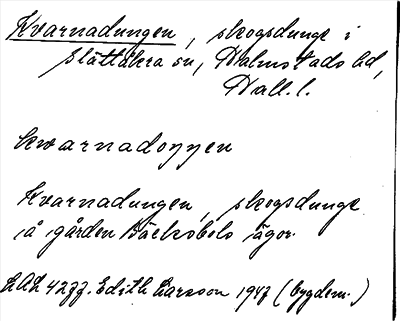 Kvarnadungen, skogsdunge i
Slättåkra sn, Halmstads hd,
Hall. l.
kwarnadoŋŋen
Kvarnadungen, skogsdunge
å gården Bäckabols ägor.
LAL 4277. Edith Larsson 1947 (bygdem.)